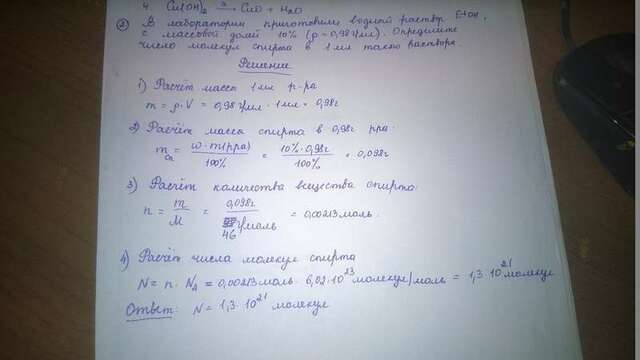 4. Cu(OH)₂ →t CuO + H₂O
② В лаборатории приготовили водной раствор EtOH,
с массовой долей 10% (ρ = 0,98 г/мл). Определите
число молекул спирта в 1 мл такого раствора.
Решение
1) Расчёт масса 1 мл р-ра
m = ρ·V = 0,98 г/мл · 1 мл = 0,98 г
2) Расчёт масса спирта в 0,98 г рра.
m сп = ω·m(рра) / 100% = 10% · 0,98 г / 100% = 0,098 г
3) Расчёт количества вещества спирта:
n = m / M = 0,098 г / 46 г/моль = 0,00213 моль.
4) Расчёт числа молекул спирта
N = n · Nₐ = 0,00213 моль · 6,02 · 10²³ молекул/моль = 1,3 · 10²¹ молекул
Ответ: N = 1,3 · 10²¹ молекул